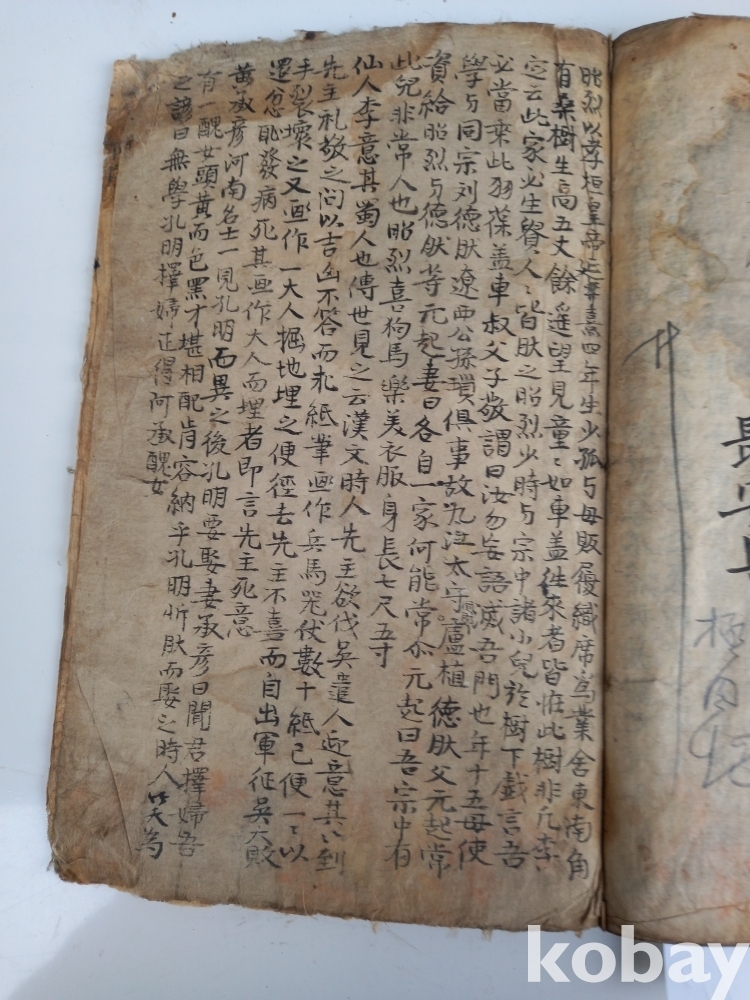 昭烈以孝桓皇帝延熹四年生少孤与母販履織席為業舍東南角
有桑樹生高五丈餘遥望見童〻如車盖徃來者皆恠此樹非凡李
定云此家必生貴人〻皆肰之昭烈少時与宗中諸小兒於樹下戱言吾
必當乗此羽葆盖車叔父子敬謂曰汝勿妄語滅吾門也年十五母使
學与同宗刘德肰遼西公孫瓚俱事故九江太守盧植德肰父元起常
資給昭烈与德肰等元起妻曰各自一家何能常尒元起曰吾宗中有
此兒非常人也昭烈喜狗馬樂美衣服身長七尺五寸
仙人李意其蜀人也傳世見之云漢文時人先主欲伐吳遣人迎意其〻到
先主礼敬之问以吉凶不答而求紙筆画作兵馬器仗數十紙已便一〻以
手裂壞之又画作一大人掘地埋之便徑去先主不喜而自出軍征吳大敗
還忿耻發病死其画作大人而埋者即言先主死意
黄承彦河南名士一見孔明而異之後孔明要娶妻承彦曰聞君擇婦吾
有一醜女頭黄而色黑才堪相配肯容納乎孔明忻肰而娶之時人以笑為
之諺曰無學孔明擇婦正得阿承醜女
kobay